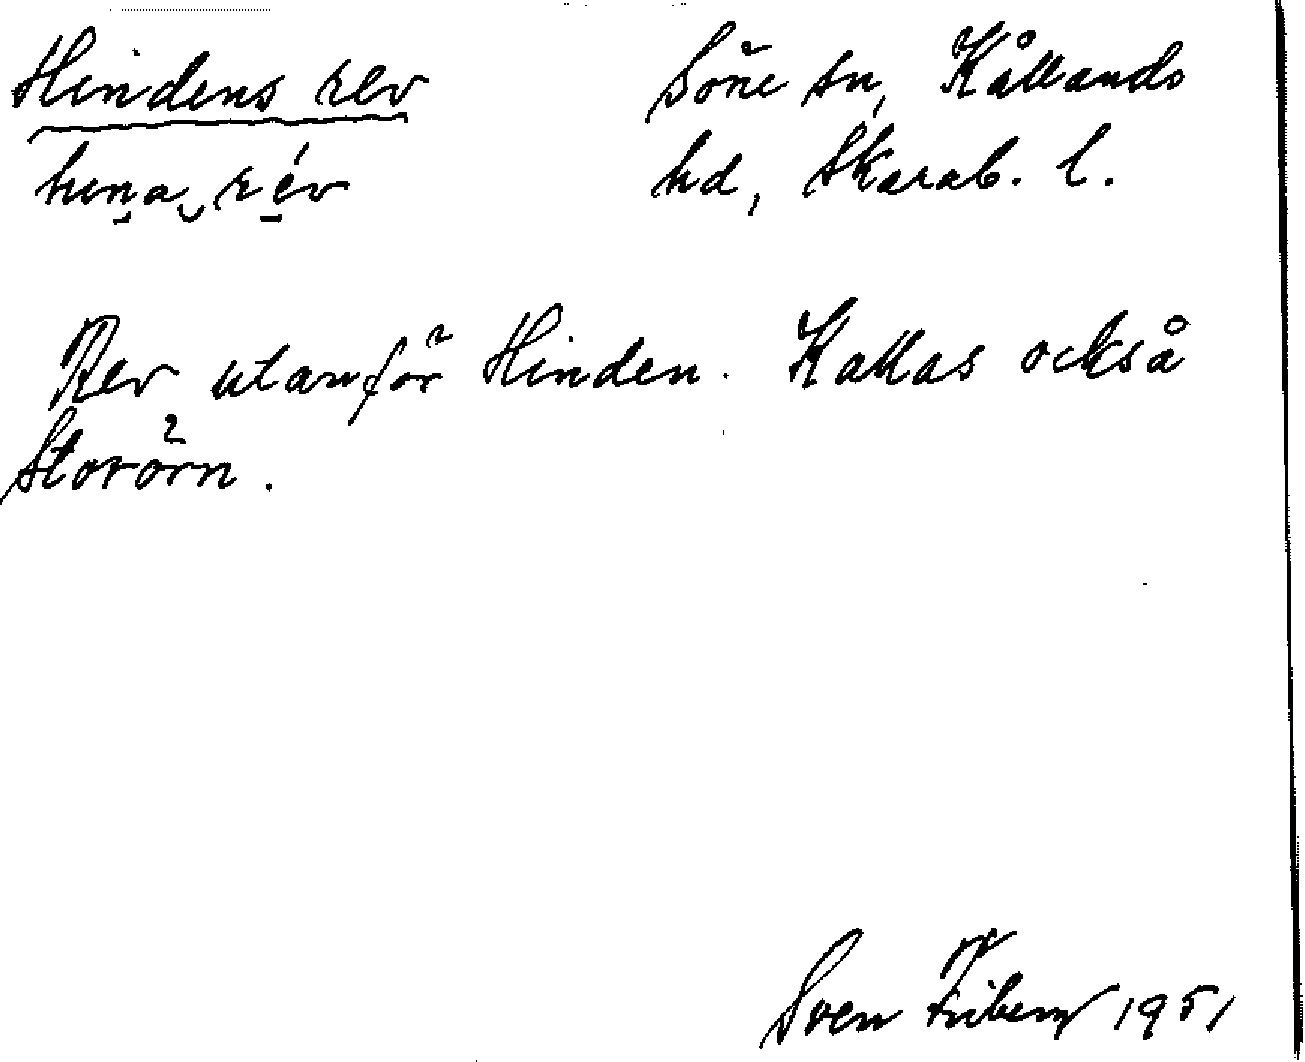 Hindens rev Söne sn, Kållands
hd, Skarab. l.
Rev utanför Hinden. Kallas också
Storörn.
Sven Friberg 1951